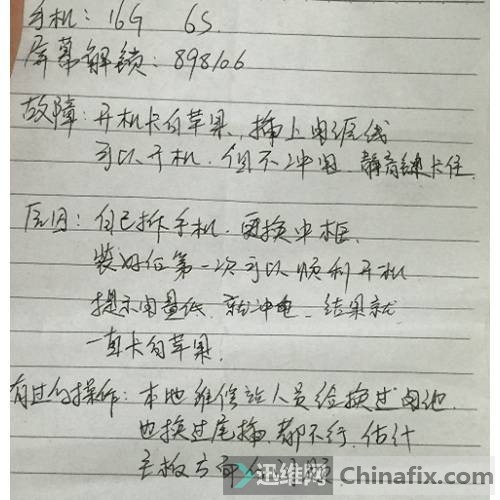 手机：16G 6S
屏幕解锁：898106
故障：开机卡白苹果，插上电源线
可以开机，但不冲电，静音键卡住
原因：自己拆手机，更换中框，
装好后第一次可以顺利开机
提示电量低，就冲电，结果就
一直卡白苹果。
有过的操作：本地维修站人员给换过电池，
也换过尾插，都不行，估计
主板方面
迅维网 Chinafix.com